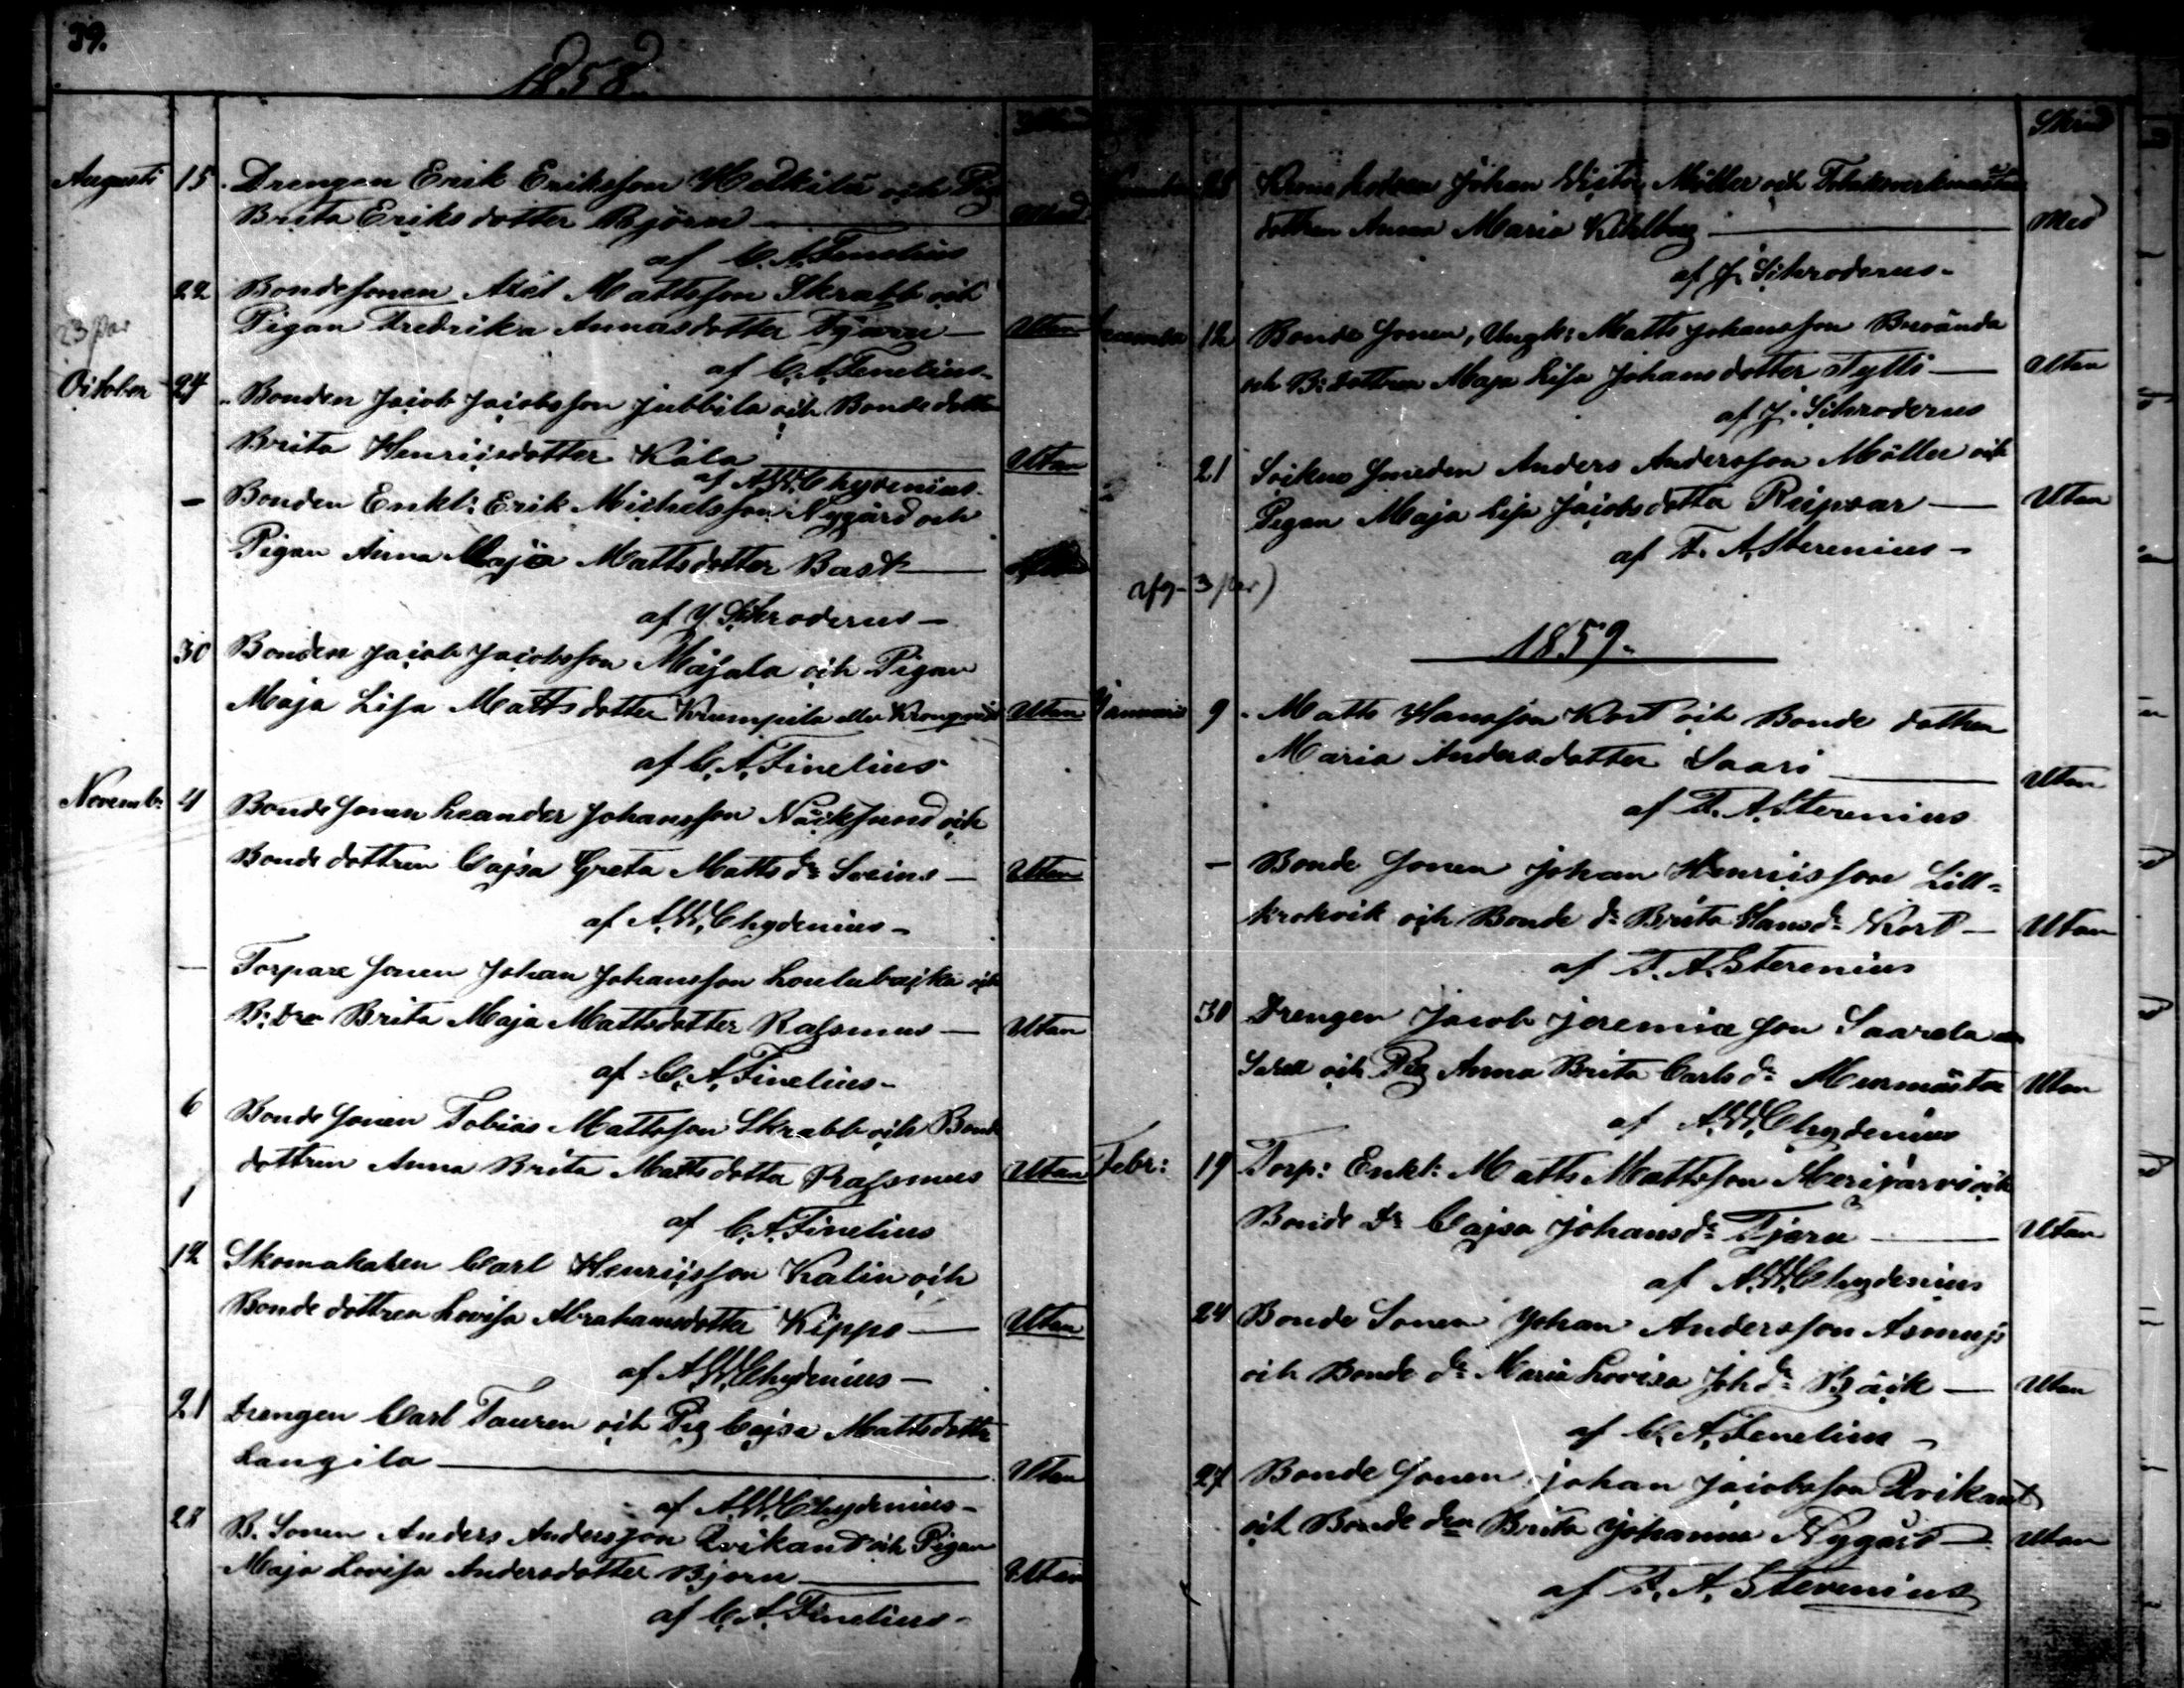 39.
1858.
Skrud
Augusti 15. Drengen Erik Eriksson Holkila och Pig
Brita Eriksdotter Björn — Med
af C. A. Finelius
22 Bondesonen Axel Mattsson Skrabb och
Pigan Fredrika Annasdotter Tjäru — Utan
23 par
af C. A. Finelius
October 24 Bonden Jacob Jacobsson Jubbila och Bondedottr
Brita Henricsdotter Kåla — Utan
af A. W. Chydenius
— Bonden Enkl: Erik Michelsson Nygård och
Pigan Anna Maja Mattsdotter Bast —
af J. Schroderus —
30 Bonden Jacob Jacobsson Majala och Pigan
Maja Lisa Mattsdotter Krumpila eller Kronqvist Utan
af C. A. Finelius
Novemb: 4 Bonde sonen Leander Johansson Näcksund och
Bonde dottren Cajsa Greta Matts dr Sveins — Utan
af A. W. Chydenius —
— Torpare sonen Johan Johansson Loulubacka och
B: dr Brita Maja Mattsdotter Rasmus — Utan
af C. A. Finelius —
6 Bonde sonen Tobias Mattsson Skrabb och Bonde
dottren Anna Brita Mattsdotter Rasmus Utan
af C. A. Finelius
12 Skomakaren Carl Henricsson Kalin och
Bonde dottren Lovisa Abrahamsdotter Kippo — Utan
af A. W. Chydenius —
21 Drengen Carl Tauren och Pig Cajsa Mattsdotter
Langila — Utan
af A. W. Chydenius —
28 B. Sonen Anders Andersson Qvikant och Pigan
Maja Lovisa Andersdotter Bjorn — Utan
af C. A. Finelius —
Skrud
28 Johan Victor Möller och
dottren Anna Maria Kihlberg — Med
af J. Schroderus —
December 12 Bonde sonen, Ungk: Matts Johansson Borända
och B: dottren Maja Lisa Johansdotter Tylli — Utan
af J. Schroderus
21 Sockne smeden Anders Andersson Möller och
Pigan Maja Lisa Jacobsdotter Reipsar — Utan
af F. A. Sterenius —
afg - 3 par)
1859.
Januari 9. Matts Hansson Kort och Bonde dottren
Maria Andersdotter Saari — Utan
af F. A. Sterenius
— Bonde sonen Johan Henricsson Lill-
krokvik och Bonde dr Brita Hans dr Kort — Utan
af F. A. Sterenius
30 Drengen Jacob Jeremiæ son Saarela
och Pig Anna Brita Carls dr Murmästar Utan
af A. W. Chydenius
Febr: 19 Torp: Enkl: Matts Mattsson Merijärvi och
Bonde Dr Cajsa Johans dr Tjäru — Utan
af A. W. Chydenius
24 Bonde Sonen Johan Andersson Asmus
och Bonde dr Maria Lovisa Joh dr Bäck — Utan
af C. A. Finelius —
27 Bonde sonen Johan Jacobsson Qvikant
och Bonde drn Brita Johanna Nygård — Utan
af F. A. Sterenius